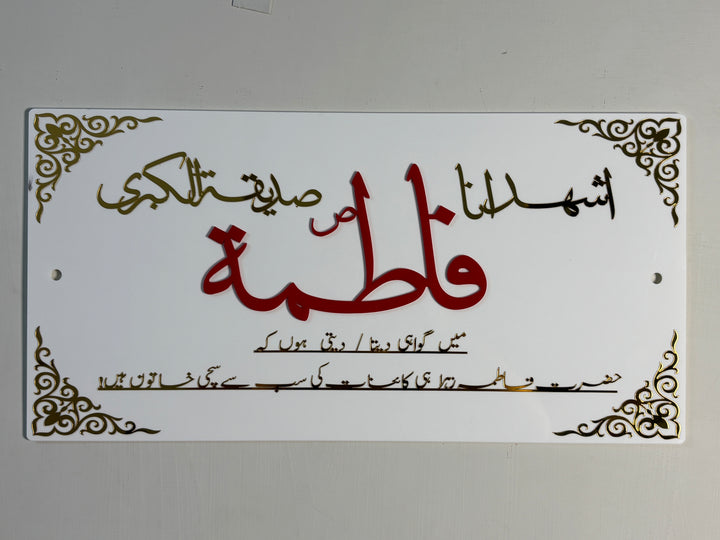 اشهد انا فاطمة ص صدیقة الکبری
میں گواہی دیتا / دیتی ہوں کہ
حضرت فاطمہ زہرا ہی کائنات کی سب سے سچی خاتون ہیں!